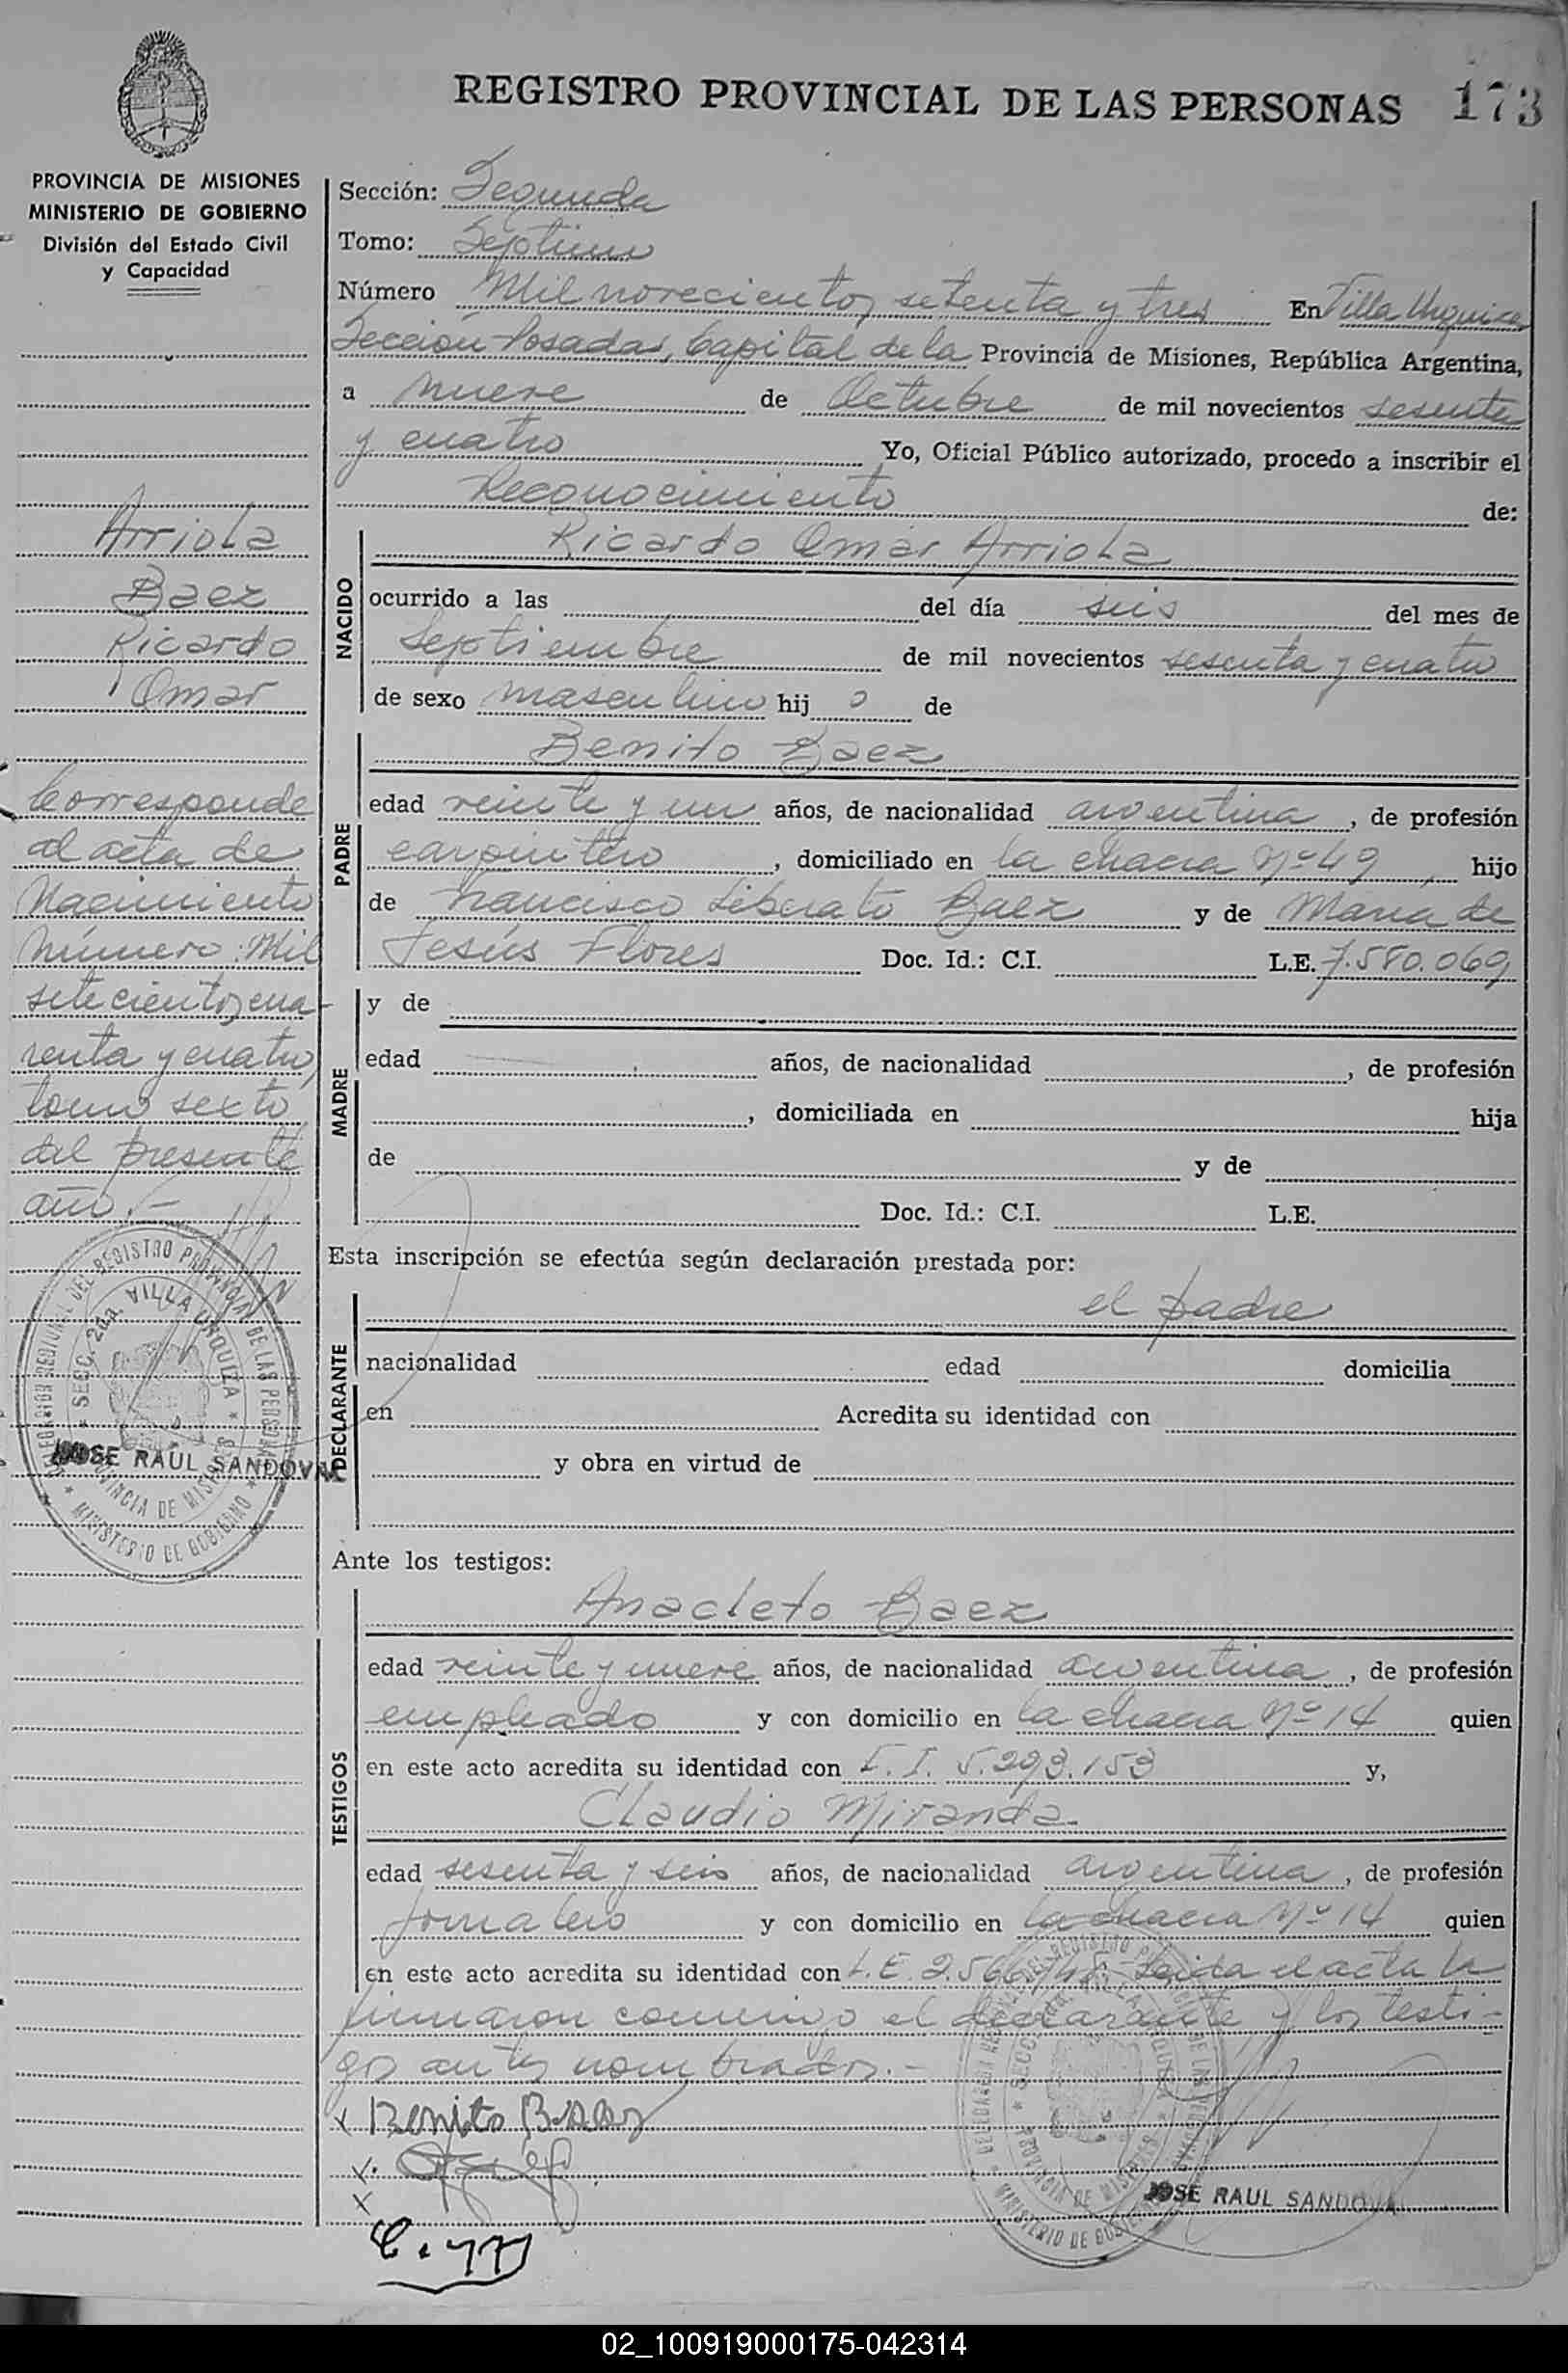 REGISTRO PROVINCIAL DE LAS PERSONAS 173
PROVINCIA DE MISIONES
MINISTERIO DE GOBIERNO
División del Estado Civil
y Capacidad
Arriola
Baez
Ricardo
Omar
Corresponde
al acta de
Nacimiento
número: Mil
setecientos cua-
renta y cuatro,
tomo sexto
del presente
año.-
DEL REGISTRO PROVINCIAL DE LAS PERSONAS
SECC. 2da. VILLA URQUIZA
PROVINCIA DE MISIONES
MINISTERIO DE GOBIERNO
JOSE RAUL SANDOVAL
Sección: Segunda
Tomo: Septimo
Número Mil novecientos setenta y tres En Villa Urquiza
Sección Posadas, Capital de la Provincia de Misiones, República Argentina,
a nueve de Octubre de mil novecientos sesenta
y cuatro Yo, Oficial Público autorizado, procedo a inscribir el
Reconocimiento de:
NACIDO
Ricardo Omar Arriola
ocurrido a las del día seis del mes de
Septiembre de mil novecientos sesenta y cuatro
de sexo masculino hij o de
PADRE
Benito Baez
edad veinte y un años, de nacionalidad argentina, de profesión
carpintero, domiciliado en la chacra Nº 49, hijo
de Francisco Liberato Baez y de Maria de
Jesús Flores Doc. Id.: C.I. L.E. 7.580.069
MADRE
y de
edad años, de nacionalidad , de profesión
, domiciliada en hija
de y de
Doc. Id.: C.I. L.E.
Esta inscripción se efectúa según declaración prestada por:
DECLARANTE
el padre
nacionalidad edad domicilia
en Acredita su identidad con
y obra en virtud de
Ante los testigos:
TESTIGOS
Anacleto Baez
edad veinte y nueve años, de nacionalidad argentina, de profesión
empleado y con domicilio en la chacra Nº 14 quien
en este acto acredita su identidad con 5.293.153 y,
Claudio Miranda
edad sesenta y seis años, de nacionalidad argentina, de profesión
jornalero y con domicilio en la chacra Nº 14 quien
en este acto acredita su identidad con L.E. Leida el acta la
firmaron conmigo el declarante y los testi-
gos antes nombrados.-
x Benito Baez
x.
x
C. M
MINISTERIO DE GOBIERNO
JOSE RAUL SANDOVAL
02_100919000175-042314